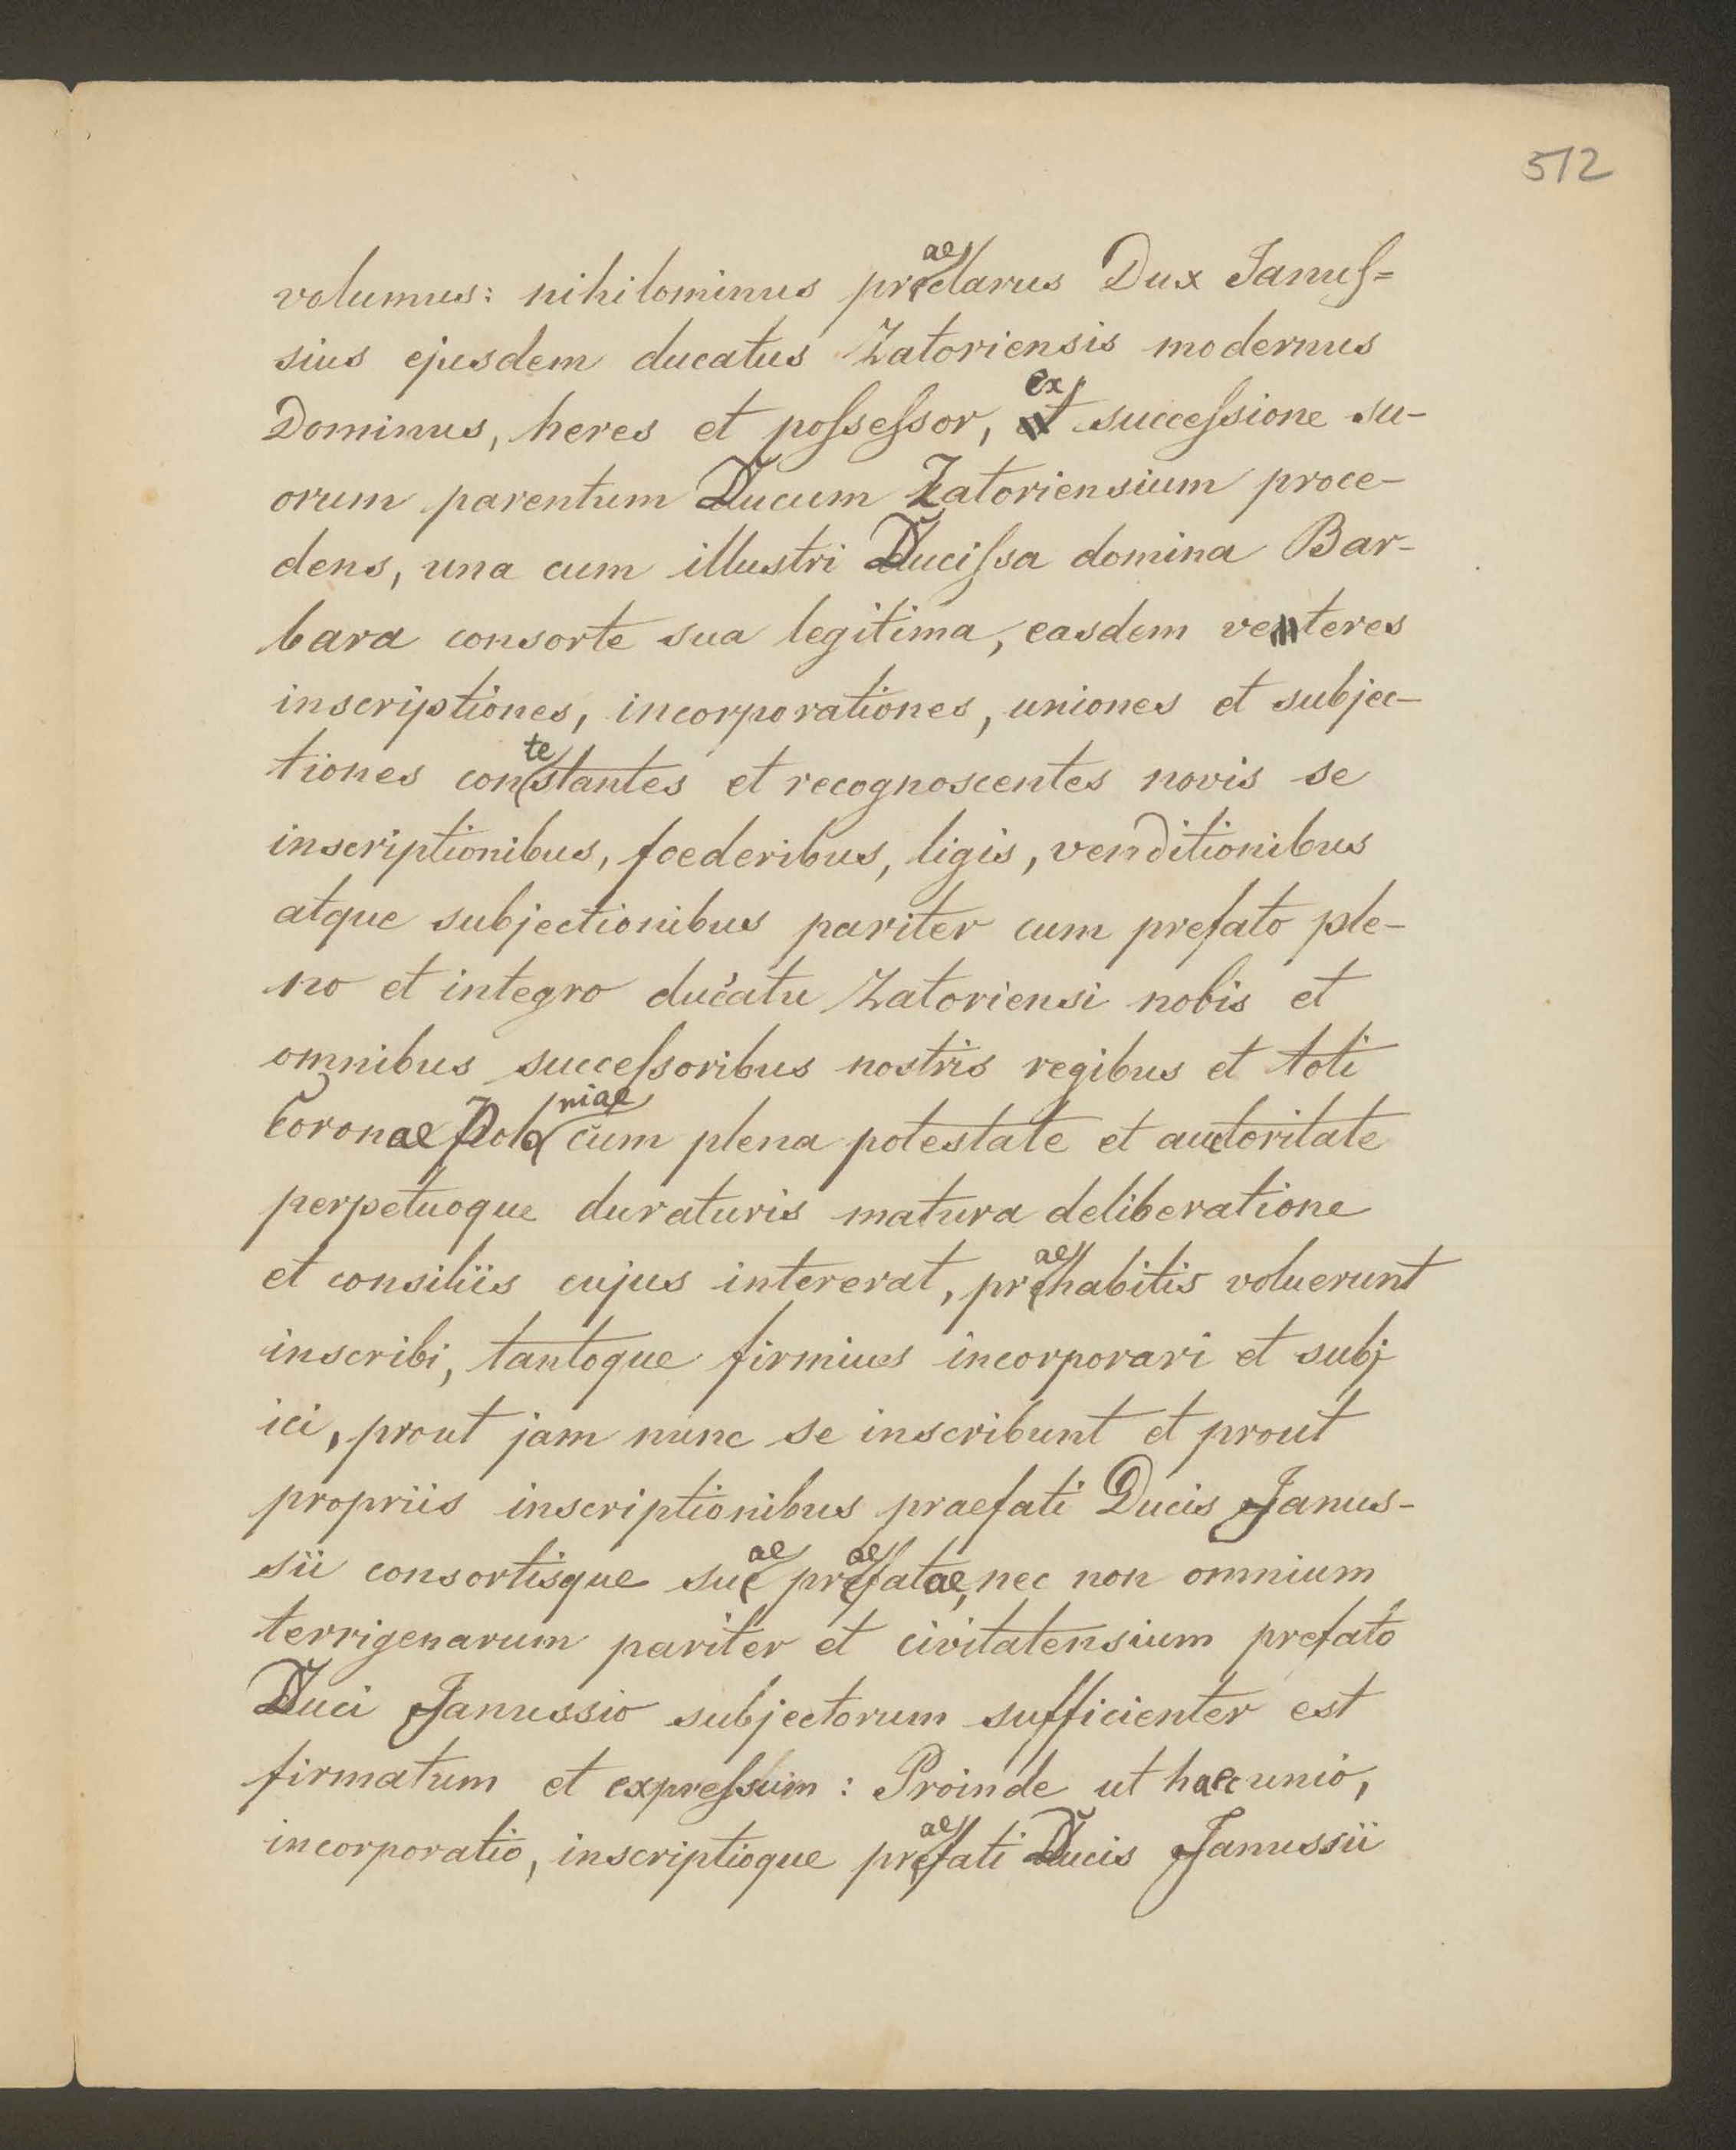 512
volumus: nihilominus praeclarus Dux Januſ=
sius ejusdem ducatus Zatoriensis modernus
Dominus, heres et poſseſsor, ex succeſsione su-
orum parentum Ducum Zatoriensium proce-
dens, una cum illustri Duciſsa domina Bar-
bara consorte sua legitima, easdem veteres
inscriptiones, incorporationes, uniones et subjec-
tiones contestantes et recognoscentes novis se
inscriptionibus, foederibus, ligis, venditionibus
atque subjectionibus pariter cum prefato ple-
no et integro ducatu Zatoriensi nobis et
omnibus succeſsoribus nostris regibus et toti
Coronae Poloniae cum plena potestate et auctoritate
perpetuoque duraturis matura deliberatione
et consiliis cujus intererat, praehabitis voluerunt
inscribi, tantoque firmius incorporari et subj
ici, prout jam nunc se inscribunt et prout
propriis inscriptionibus praefati Ducis Janus-
sii consortisque suae praefatae, nec non omnium
terrigenarum pariter et civitatensium prefato
Duci Janussio subjectorum sufficienter est
firmatum et expreſsum: Proinde ut haec unio,
incorporatio, inscriptioque praefati Ducis Janussii